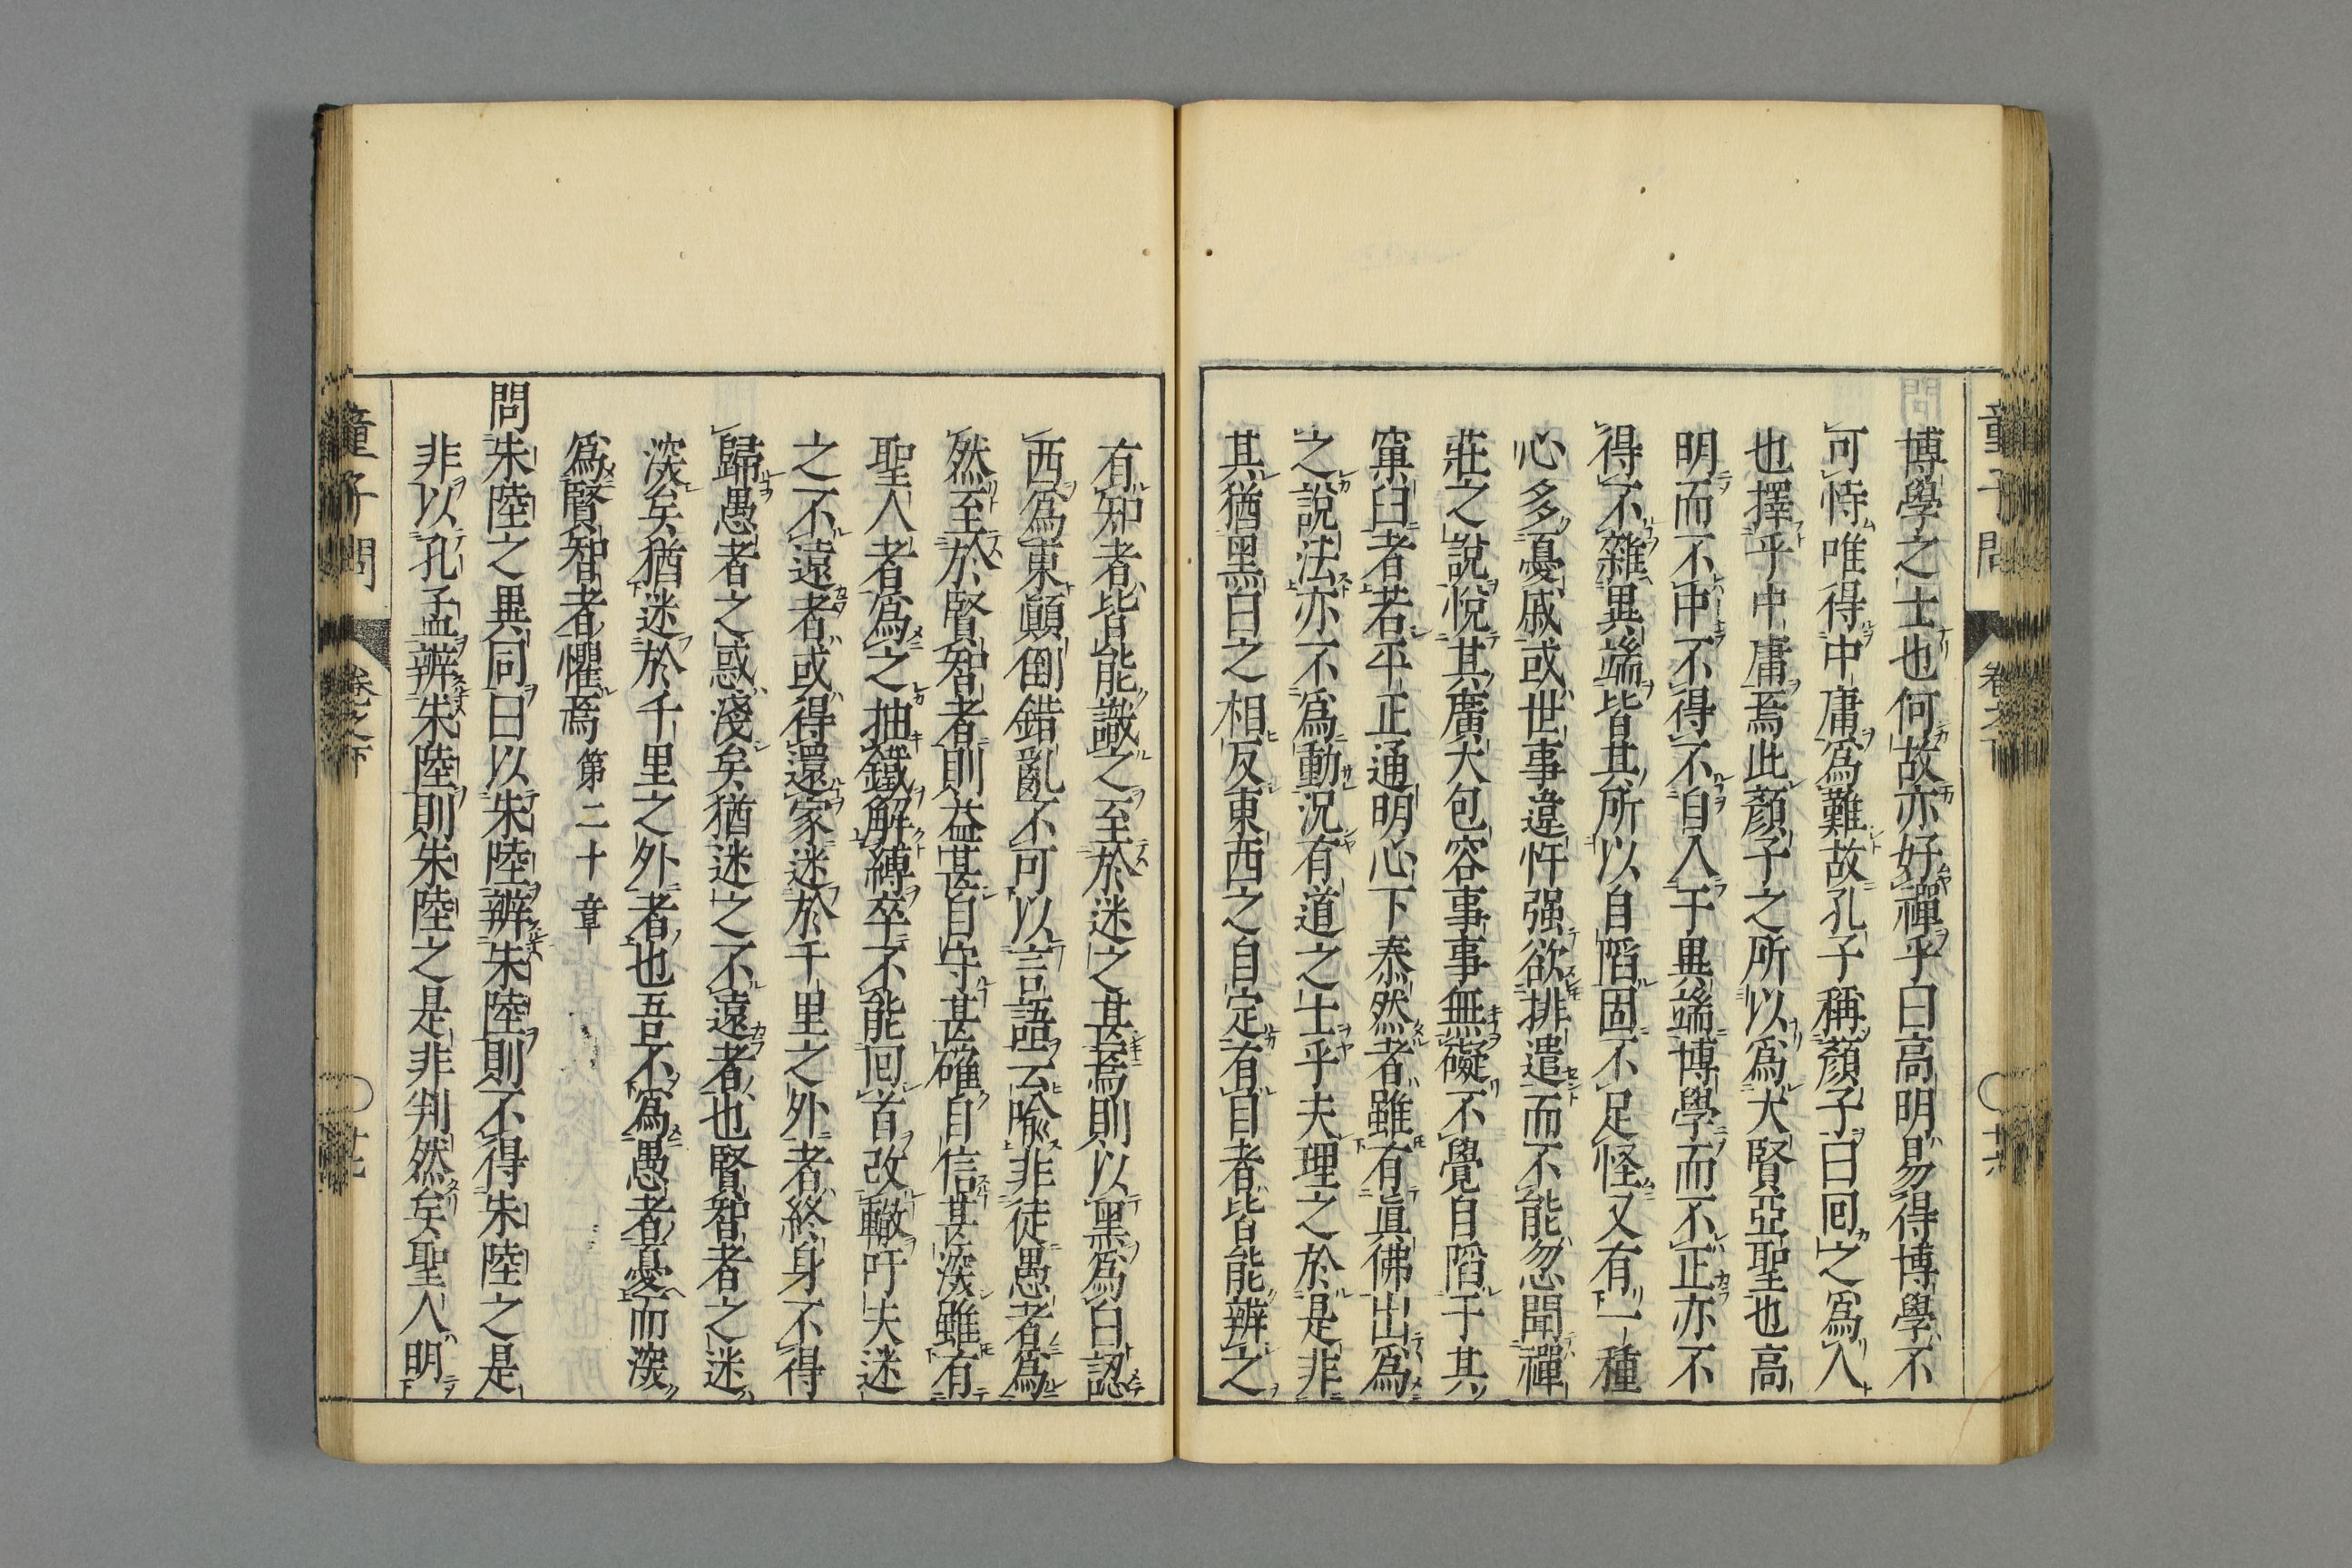 童子問 卷之下
博學之士也何故亦好禪乎曰高明易得博學不
可恃唯得中庸爲難故孔子稱顏子曰回之爲人
也擇乎中庸焉此顏子之所以爲大賢亞聖也高
明而不中不得不自入于異端博學而不正亦不
得不雜異端皆其所以自陷固不足怪又有一種
心多憂戚或世事違忤强欲排遣而不能忽聞禪
莊之說悅其廣大包容事事無礙不覺自陷于其
窠臼者若平正通明心下泰然者雖有眞佛出爲
之說法亦不爲動況有道之士乎夫理之於是非
其猶黑白之相反東西之自定有目者皆能辨之
有知者皆能識之至於迷之甚焉則以黑爲白認
西爲東顚倒錯亂不可以言語云喩非徒愚者爲
然至於賢智者則益甚自守甚確自信甚深雖有
聖人者爲之抽鐵解縛卒不能回首改轍吁夫迷
之不遠者或得還家迷於千里之外者終身不得
歸愚者之惑淺矣猶迷之不遠者也賢智者之迷
深矣猶迷於千里之外者也吾不爲愚者憂而深
爲賢智者懼焉 第二十章
問朱陸之異同曰以朱陸辨朱陸則不得朱陸之是
非以孔孟辨朱陸則朱陸之是非判然矣聖人明
童子問 卷之下